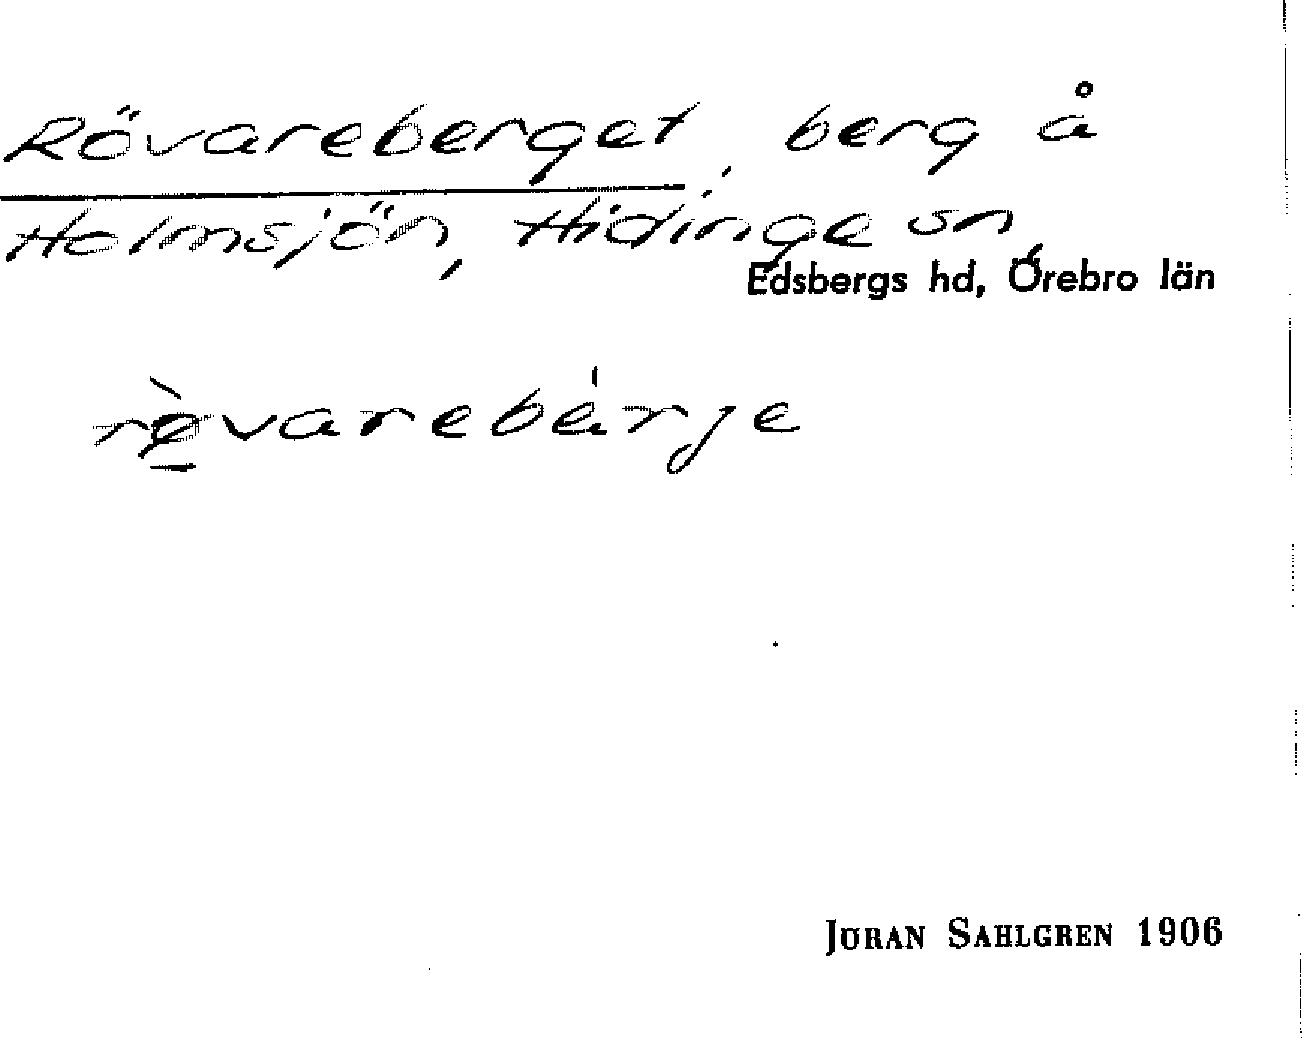 Rövareberget, berg å
Holmsjön, Hidinge sn,
Edsbergs hd, Örebro län
rø̀varebárje
JÖRAN SAHLGREN 1906